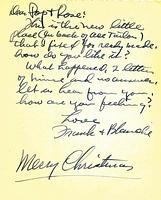 Dear Pop & Rose!
This is the new little
place (in back of Ace Tailor)
that I fixed for ready made.
How do you like it?
What happened, 2 letters
of mine and no answer.
Let us hear from you.
How are you feeling?
Love
Frank & Blanche
Merry Christmas